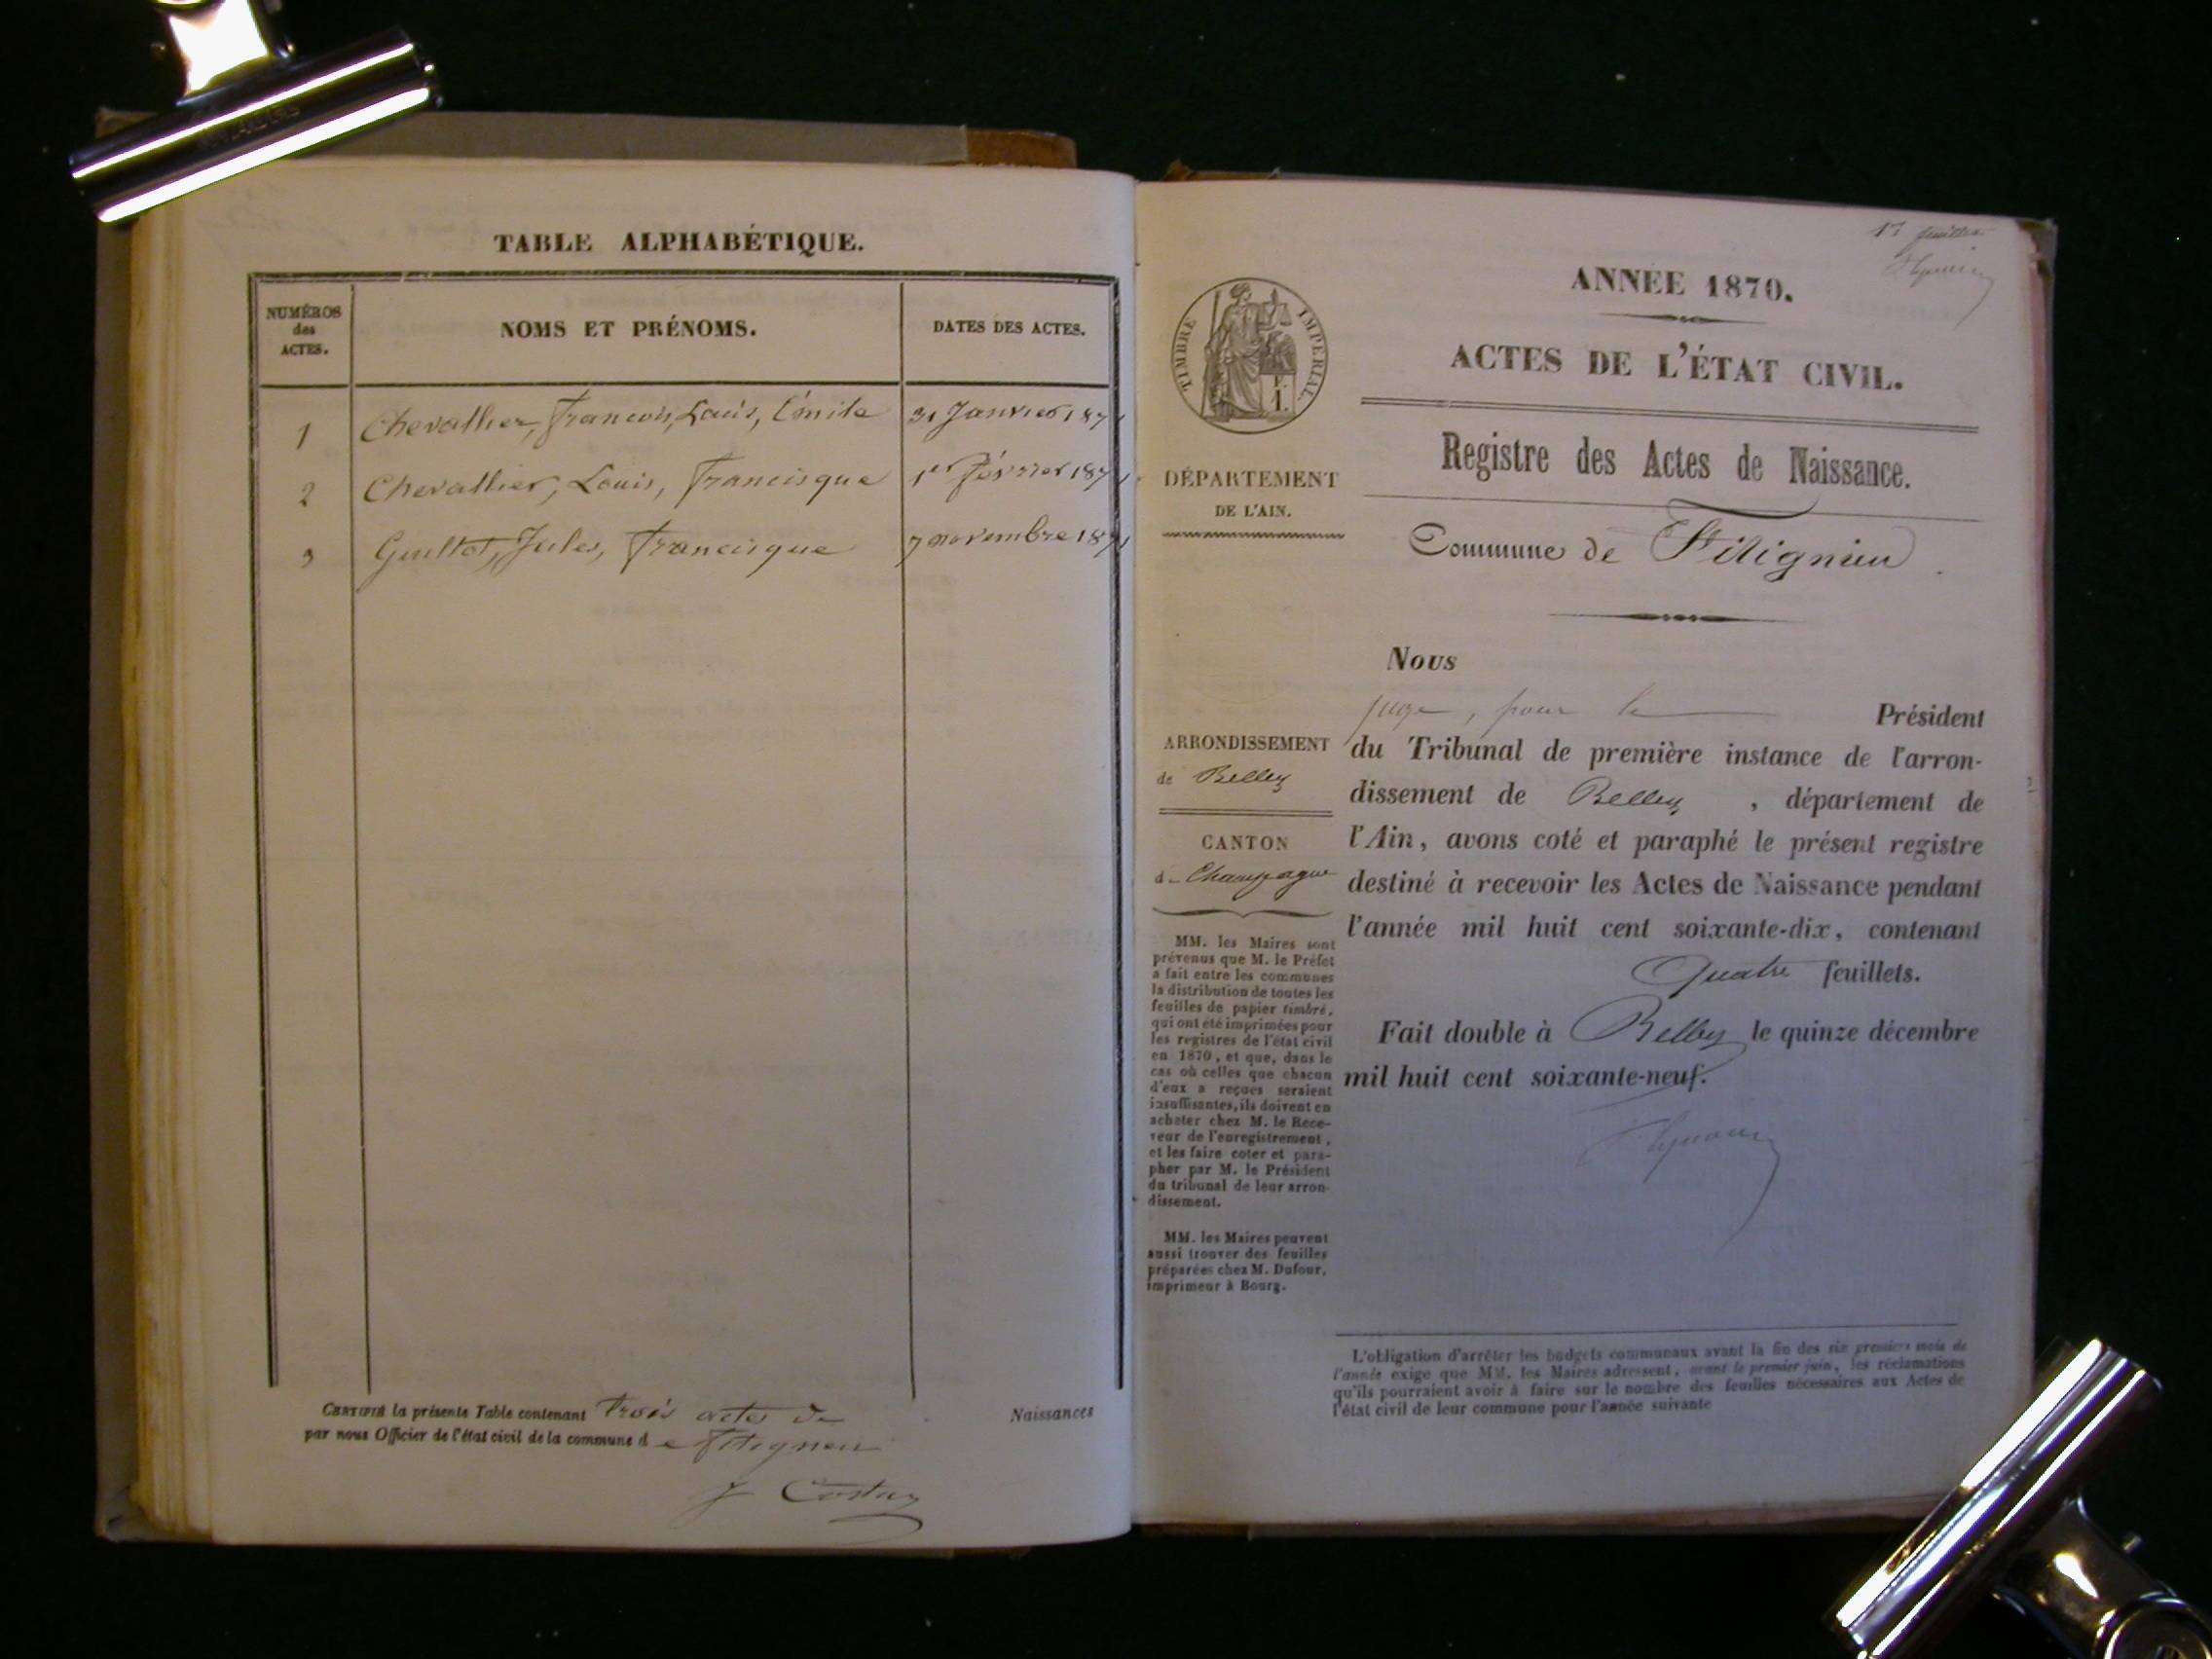 TABLE ALPHABÉTIQUE.
NUMÉROS
des
ACTES.
NOMS ET PRÉNOMS.
DATES DES ACTES.
1 Chevallier, François, Louis, Émile 31 Janvier 1871
2 Chevallier, Louis, Francisque 1er février 1871
3 Guillot, Jules, Francisque 7 novembre 1871
CERTIFIÉ la présente Table contenant trois actes de Naissances
par nous Officier de l'état civil de la commune de fitignieu
J Costaz
ANNÉE 1870.
ACTES DE L'ÉTAT CIVIL.
Registre des Actes de Naissance.
Commune de Fitignieu
TIMBRE IMPERIAL.
DÉPARTEMENT
DE L'AIN.
ARRONDISSEMENT
de Belley
CANTON
d- Champagne
MM. les Maires sont
prévenus que M. le Préfet
a fait entre les communes
la distribution de toutes les
feuilles de papier timbré,
qui ont été imprimées pour
les registres de l'état civil
en 1870, et que, dans le
cas où celles que chacun
d'eux a reçues seraient
insuffisantes, ils doivent en
acheter chez M. le Rece-
veur de l'enregistrement,
et les faire coter et para-
pher par M. le Président
du tribunal de leur arron-
dissement.
MM. les Maires peuvent
aussi trouver des feuilles
préparées chez M. Dufour,
imprimeur à Bourg.
Nous
juge, pour le Président
du Tribunal de première instance de l'arron-
dissement de Belley, département de
l'Ain, avons coté et paraphé le présent registre
destiné à recevoir les Actes de Naissance pendant
l'année mil huit cent soixante-dix, contenant
Quatre feuillets.
Fait double à Belley le quinze décembre
mil huit cent soixante-neuf.
L'obligation d'arrêter les budgets communaux avant la fin des six premiers mois de
l'année exige que MM. les Maires adressent, avant le premier juin, les réclamations
qu'ils pourraient avoir à faire sur le nombre des feuilles nécessaires aux Actes de
l'état civil de leur commune pour l'année suivante